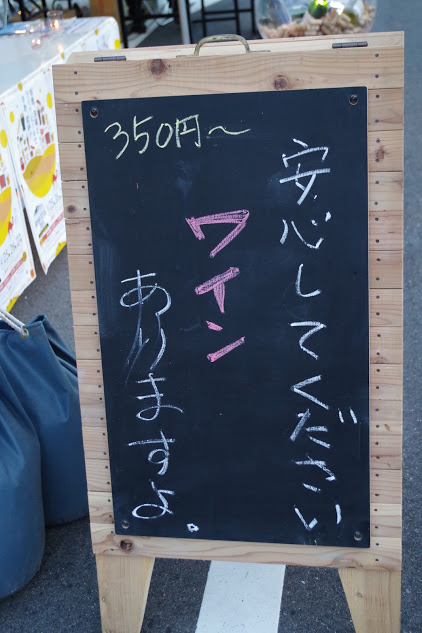 安心してください
ワイン
ありますよ。
350円〜